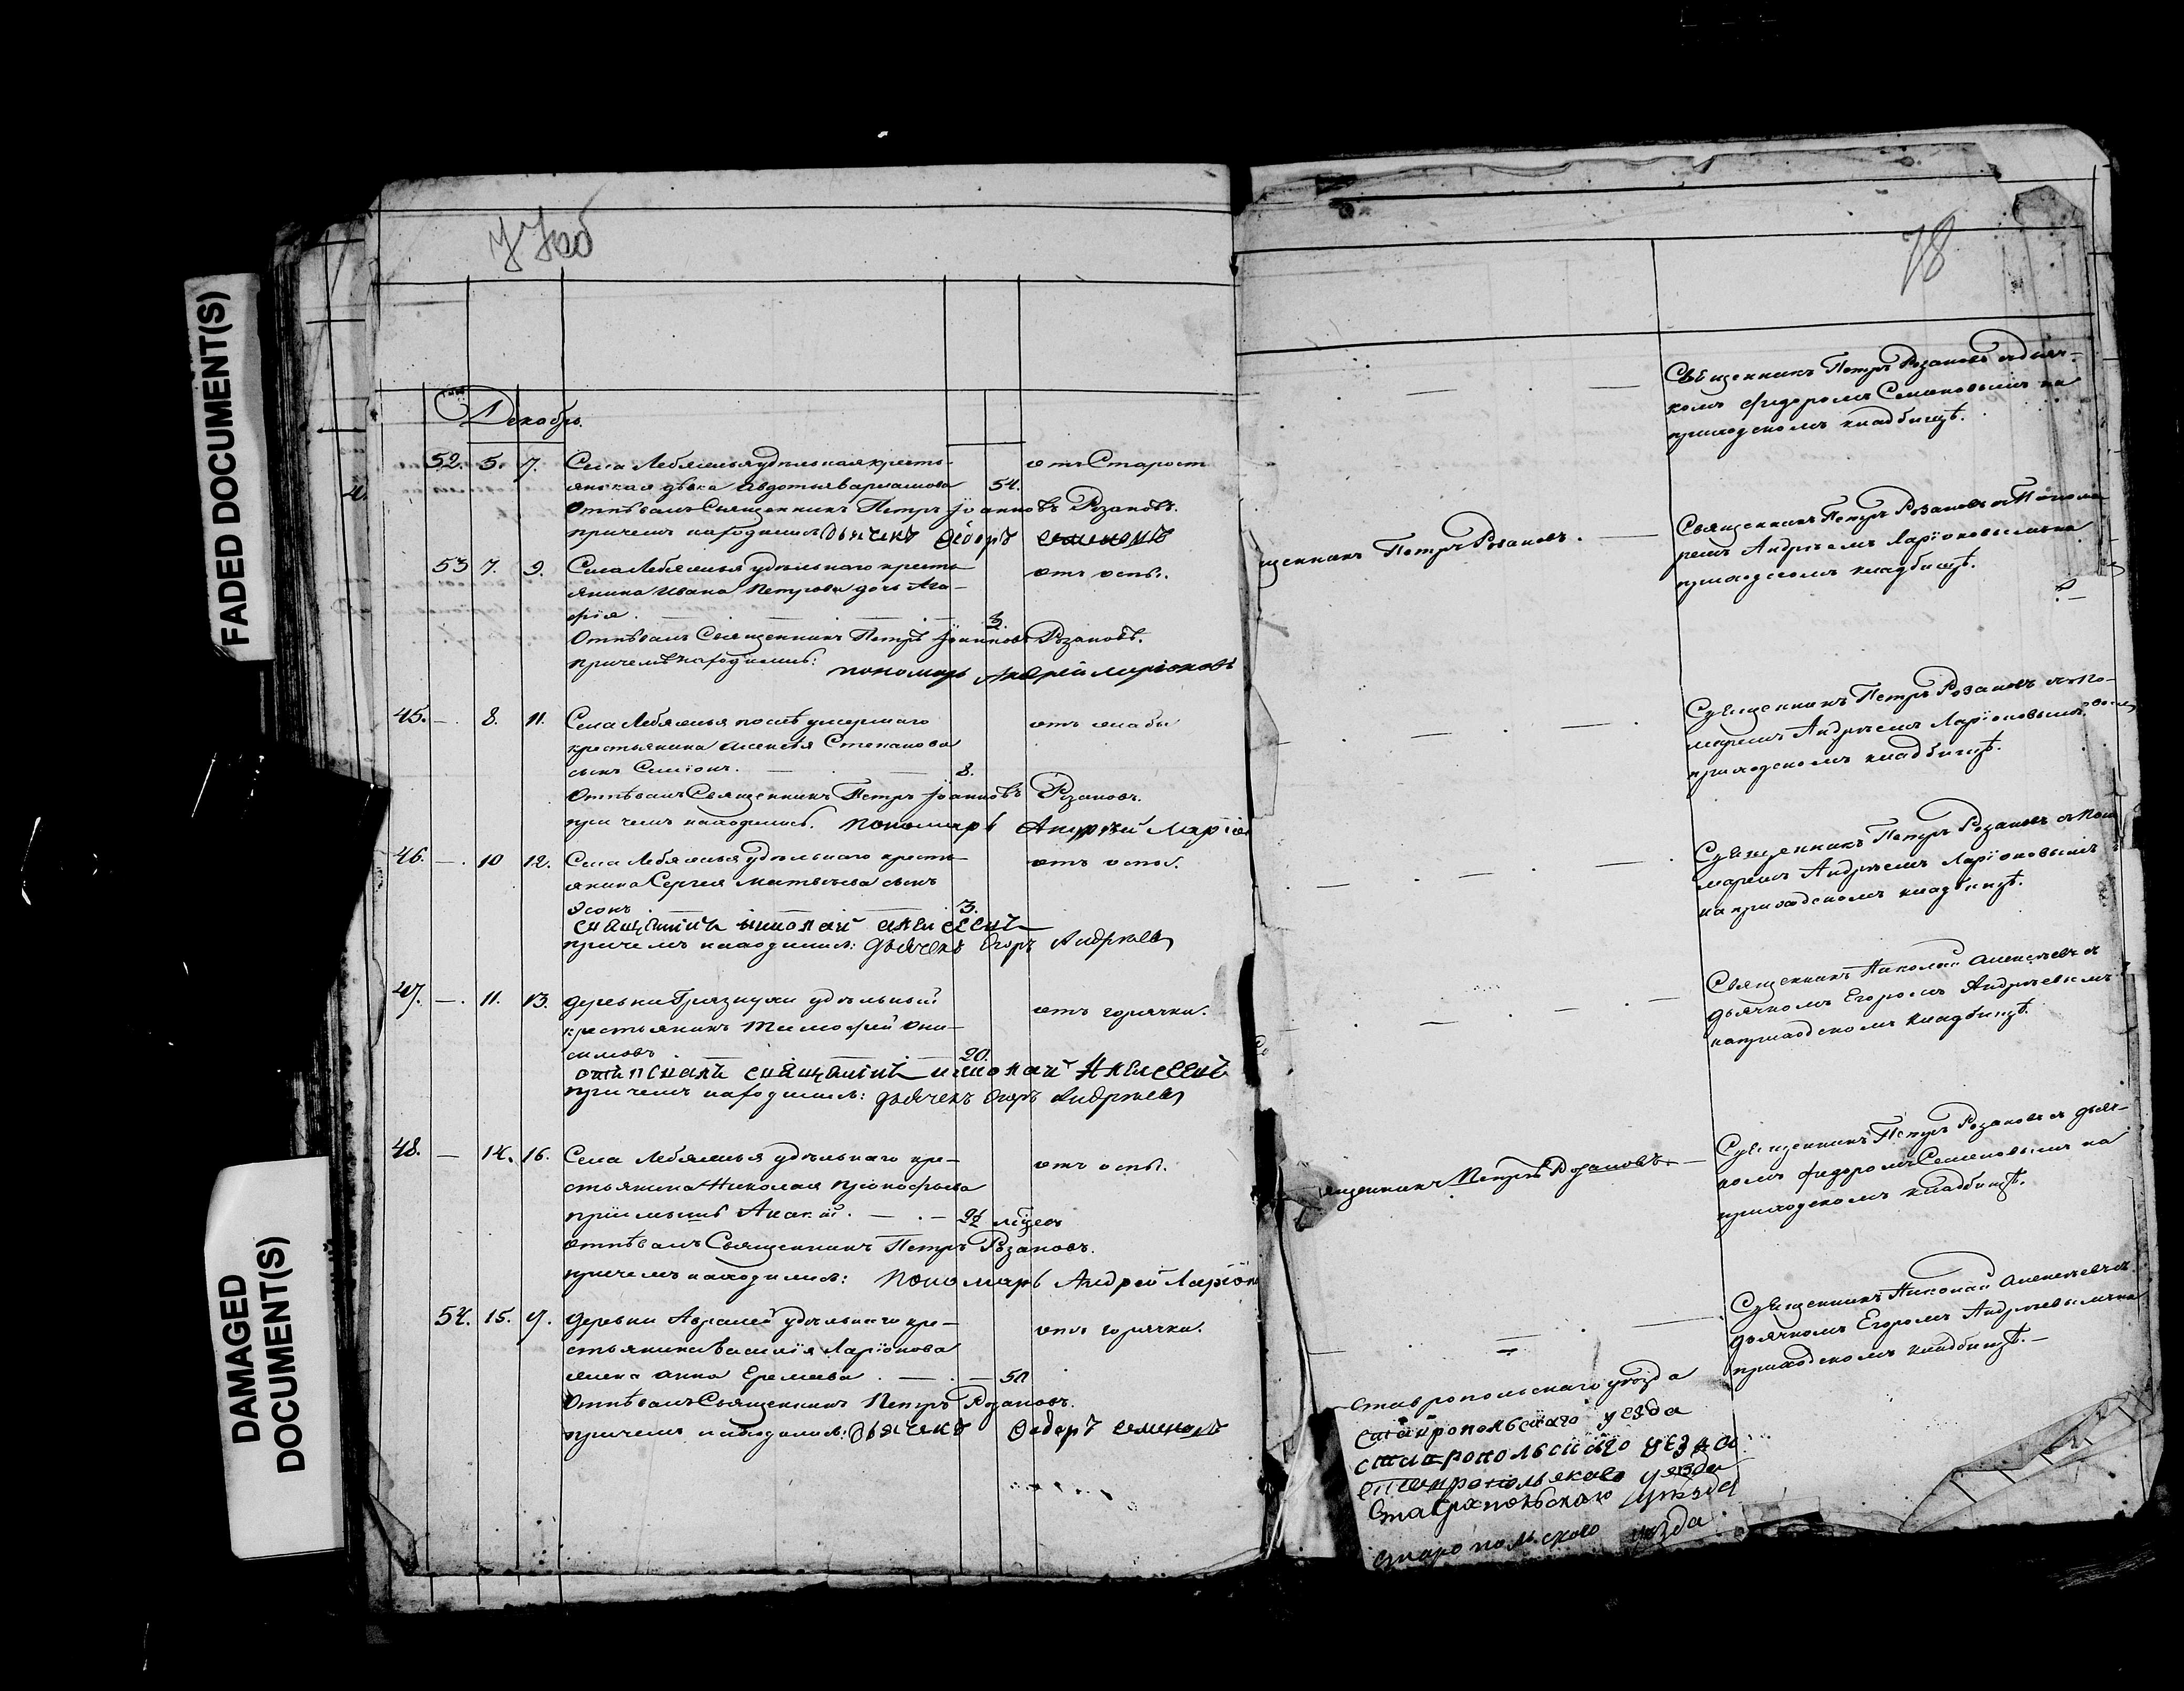 FADED DOCUMENT(S)
DAMAGED DOCUMENT(S)
77об
Декабрь
52. 5. 7. Села Лебяжья удѣльная кресть-
янская дѣвка Авдотья Варламова 54. отъ Старост
Отпѣвалъ Священникъ Петръ Іоанновъ Розановъ.
при чемъ находился Дьячекъ Ѳедоръ Семеновъ
53 7. 9. Села Лебяжья удѣльнаго кресть-
янина Ивана Петрова дочь Ага- отъ оспы.
фія 3.
Отпѣвалъ Священникъ Петръ Іоанновъ Розановъ.
при чемъ находились: пономарь Андрей Ларіоновъ
45. —. 8. 11. Села Лебяжья послѣ умершаго отъ слабы
крестьянина Алексѣя Степанова
сынъ Симіонъ. 8.
Отпѣвалъ Священникъ Петръ Іоанновъ Розановъ.
при чемъ находились. Пономарь Андрей Ларіон
46. —. 10 12. Села Лебяжья удѣльнаго кресть- отъ оспы.
янина Сергея Матвѣева сынъ
3.
священникъ николай алексеевъ
при чемъ находился: Дьячекъ Егоръ Андреевъ
47. —. 11. 13. Деревни Грязнухи удѣльный отъ горячки.
крестьянинъ Тимофей Они-
симовъ 20.
отпевалъ священникъ николай Алексеевъ
при чемъ находился: дьячекъ Егоръ Андреевъ
48. — 14. 16. Села Лебяжья удѣльнаго кре- отъ оспы.
стьянина Николая Прокофьева
пріимышъ Акакій.
отпѣвалъ Священникъ Петръ Розановъ.
при чемъ находились: Пономарь Андрей Ларіон
54. 15. 17. Деревни удѣльнаго кре- отъ горячки.
стьянина Василія Ларіонова
жена Анна Еремеева 50
Отпѣвалъ Священникъ Петръ Розановъ.
при чемъ находился: Дьячекъ Ѳедоръ Семеновъ
78
Священникъ Петръ Розановъ съ дьяч-
комъ Фидоромъ Семеновымъ на
приходскомъ кладбищѣ.
щенникъ Петръ Розановъ.
Священникъ Петръ Розановъ съ Понома
ремъ Андреемъ Ларіоновымъ на
приходскомъ кладбищѣ.
Священникъ Петръ Розановъ съ По-
номаремъ Андреемъ Ларіоновымъ
приходскомъ кладбищѣ.
Священникъ Петръ Розановъ съ Поно
маремъ Андреемъ Ларіоновымъ
на приходскомъ кладбищѣ.
Священникъ Николай Алексѣевъ съ
дьячкомъ Егоромъ Андреевымъ
на приходскомъ кладбищѣ.
ященникъ Петръ Розановъ.
Священникъ Петръ Розановъ съ дьяч-
комъ Фидоромъ Семеновымъ на
приходскомъ кладбищѣ.
Священникъ Николай Алексѣевъ съ
дьячкомъ Егоромъ Андреевымъ на
приходскомъ кладбищѣ.—
Ставропольскаго уѣзда
ставропольскаго уезда
ставропольскаго уезда
ставропольскаго уезда
Ставропольскаго уѣзда
ставропольскаго уѣзда